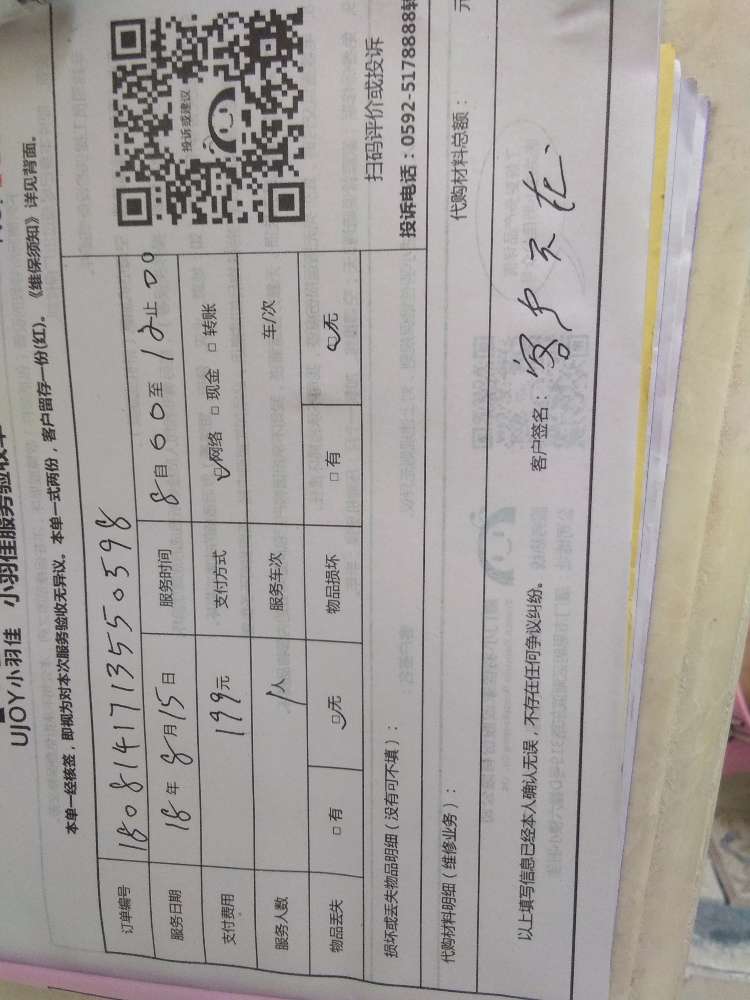 UJOY小羽佳 小羽佳服务验收单
本单一经核签，即视为对本次服务验收无异议。本单一式两份，客户留存一份(红)。《维保须知》详见背面。
订单编号 180814171355 0598
服务日期 18年8月15日 服务时间 8自00至12止00
支付费用 199元 支付方式 ☑网络 □现金 □转账
服务人数 1人 服务车次 车/次
物品丢失 □有 ☑无 物品损坏 □有 ☑无
投诉或建议
扫码评价或投诉
损坏或丢失物品明细（没有可不填）：
投诉电话：0592-5178888转
代购材料明细（维修业务）： 代购材料总额： 元
以上填写信息已经本人确认无误，不存在任何争议纠纷。 客户签名：客户不在.